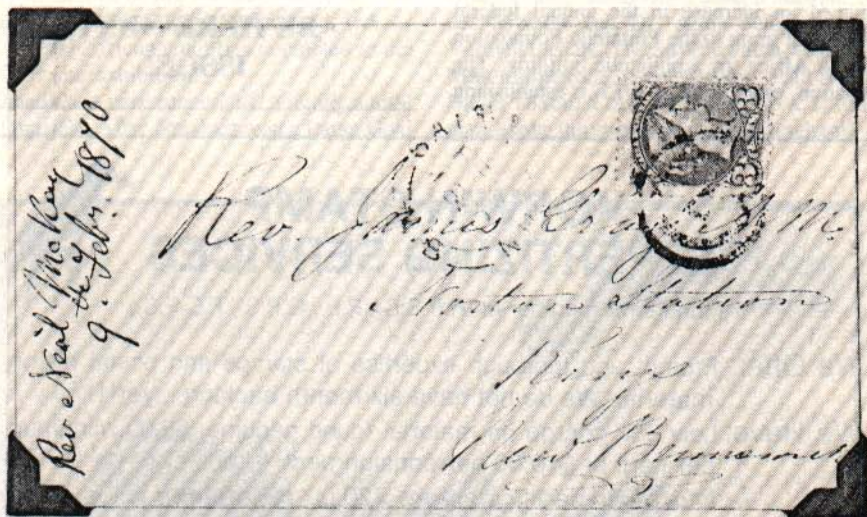 Rev Neil McKay
9th Febr. 1870
Rev. James Gray A.M.
Norton Station
Kings
New Brunswick
3 3